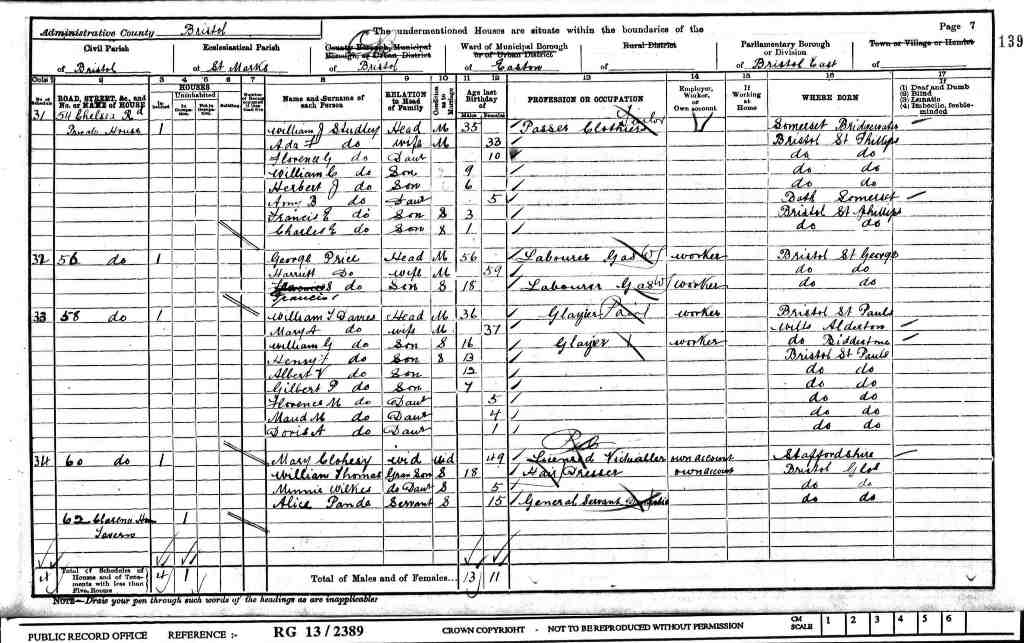 Administrative County Bristol
The undermentioned Houses are situate within the boundaries of the
Page 7
139
Civil Parish
of Bristol
Ecclesiastical Parish
of St Marks
County Borough, Municipal Borough, or Urban District
of Bristol
Ward of Municipal Borough or of Urban District
of Easton
Rural District
of
Parliamentary Borough or Division
of Bristol East
Town or Village or Hamlet
of
Cols 1 2 3 4 5 6 7 8 9 10 11 12 13 14 15 16 17
No. of Schedule
ROAD, STREET, &c., and No. or NAME of HOUSE
HOUSES
Uninhabited
Name and Surname of each Person
RELATION to Head of Family
Condition as to Marriage
Age last Birthday of
Males Females
PROFESSION OR OCCUPATION
Employer, Worker, or Own account
If Working at Home
WHERE BORN
(1) Deaf and Dumb
(2) Blind
(3) Lunatic
(4) Imbecile, feeble-minded
31 54 Chelsea Rd 1 William J Studley Head M 35 Passer Clothier Tailor Somerset Bridgewater
Private House Ada F do Wife M 33 Bristol St Phillips
Florence G do Daur 10 do do
William C do Son 9 do do
Herbert J do Son 6 do do
Amy B do Daur 5 Bath Somerset
Francis E do Son S 3 Bristol St Phillips
Charles E do Son S 1 do do
32 56 do 1 George Price Head M 56 Labourer Gas W worker Bristol St George
Harriett Do wife M 59 do do
Florence S do Son S 18 Labourer Gas W worker do do
Francis
33 58 do 1 William T Davies Head M 36 Glazier worker Bristol St Pauls
Mary A do wife M 37 Wilts Alderton
William G do Son S 16 Glazier worker do Biddestone
Henry F do Son S 13 Bristol St Pauls
Albert V do Son 12 do do
Gilbert P do Son 7 do do
Florence M do Daur 5 do do
Maud M do Daur 4 do do
Doris A do Daur 1 do do
34 60 do 1 Mary Clohesy wid wid 49 Licensed Victualler own account Staffordshire
William Thomas Gran Son S 18 Hair Dresser own account Bristol Glos
Minnie Wilkes do Daur S 5 do do
Alice Panda Servant S 15 General Servant Domestic do do
62 1
Tavern
4 Total of Schedules of Houses and of Tenements with less than Five Rooms 4 1 Total of Males and of Females... 13 11
NOTE—Draw your pen through such words of the headings as are inapplicable
PUBLIC RECORD OFFICE REFERENCE :- RG 13/2389 CROWN COPYRIGHT - NOT TO BE REPRODUCED WITHOUT PERMISSION
CM SCALE 1 2 3 4 5 6